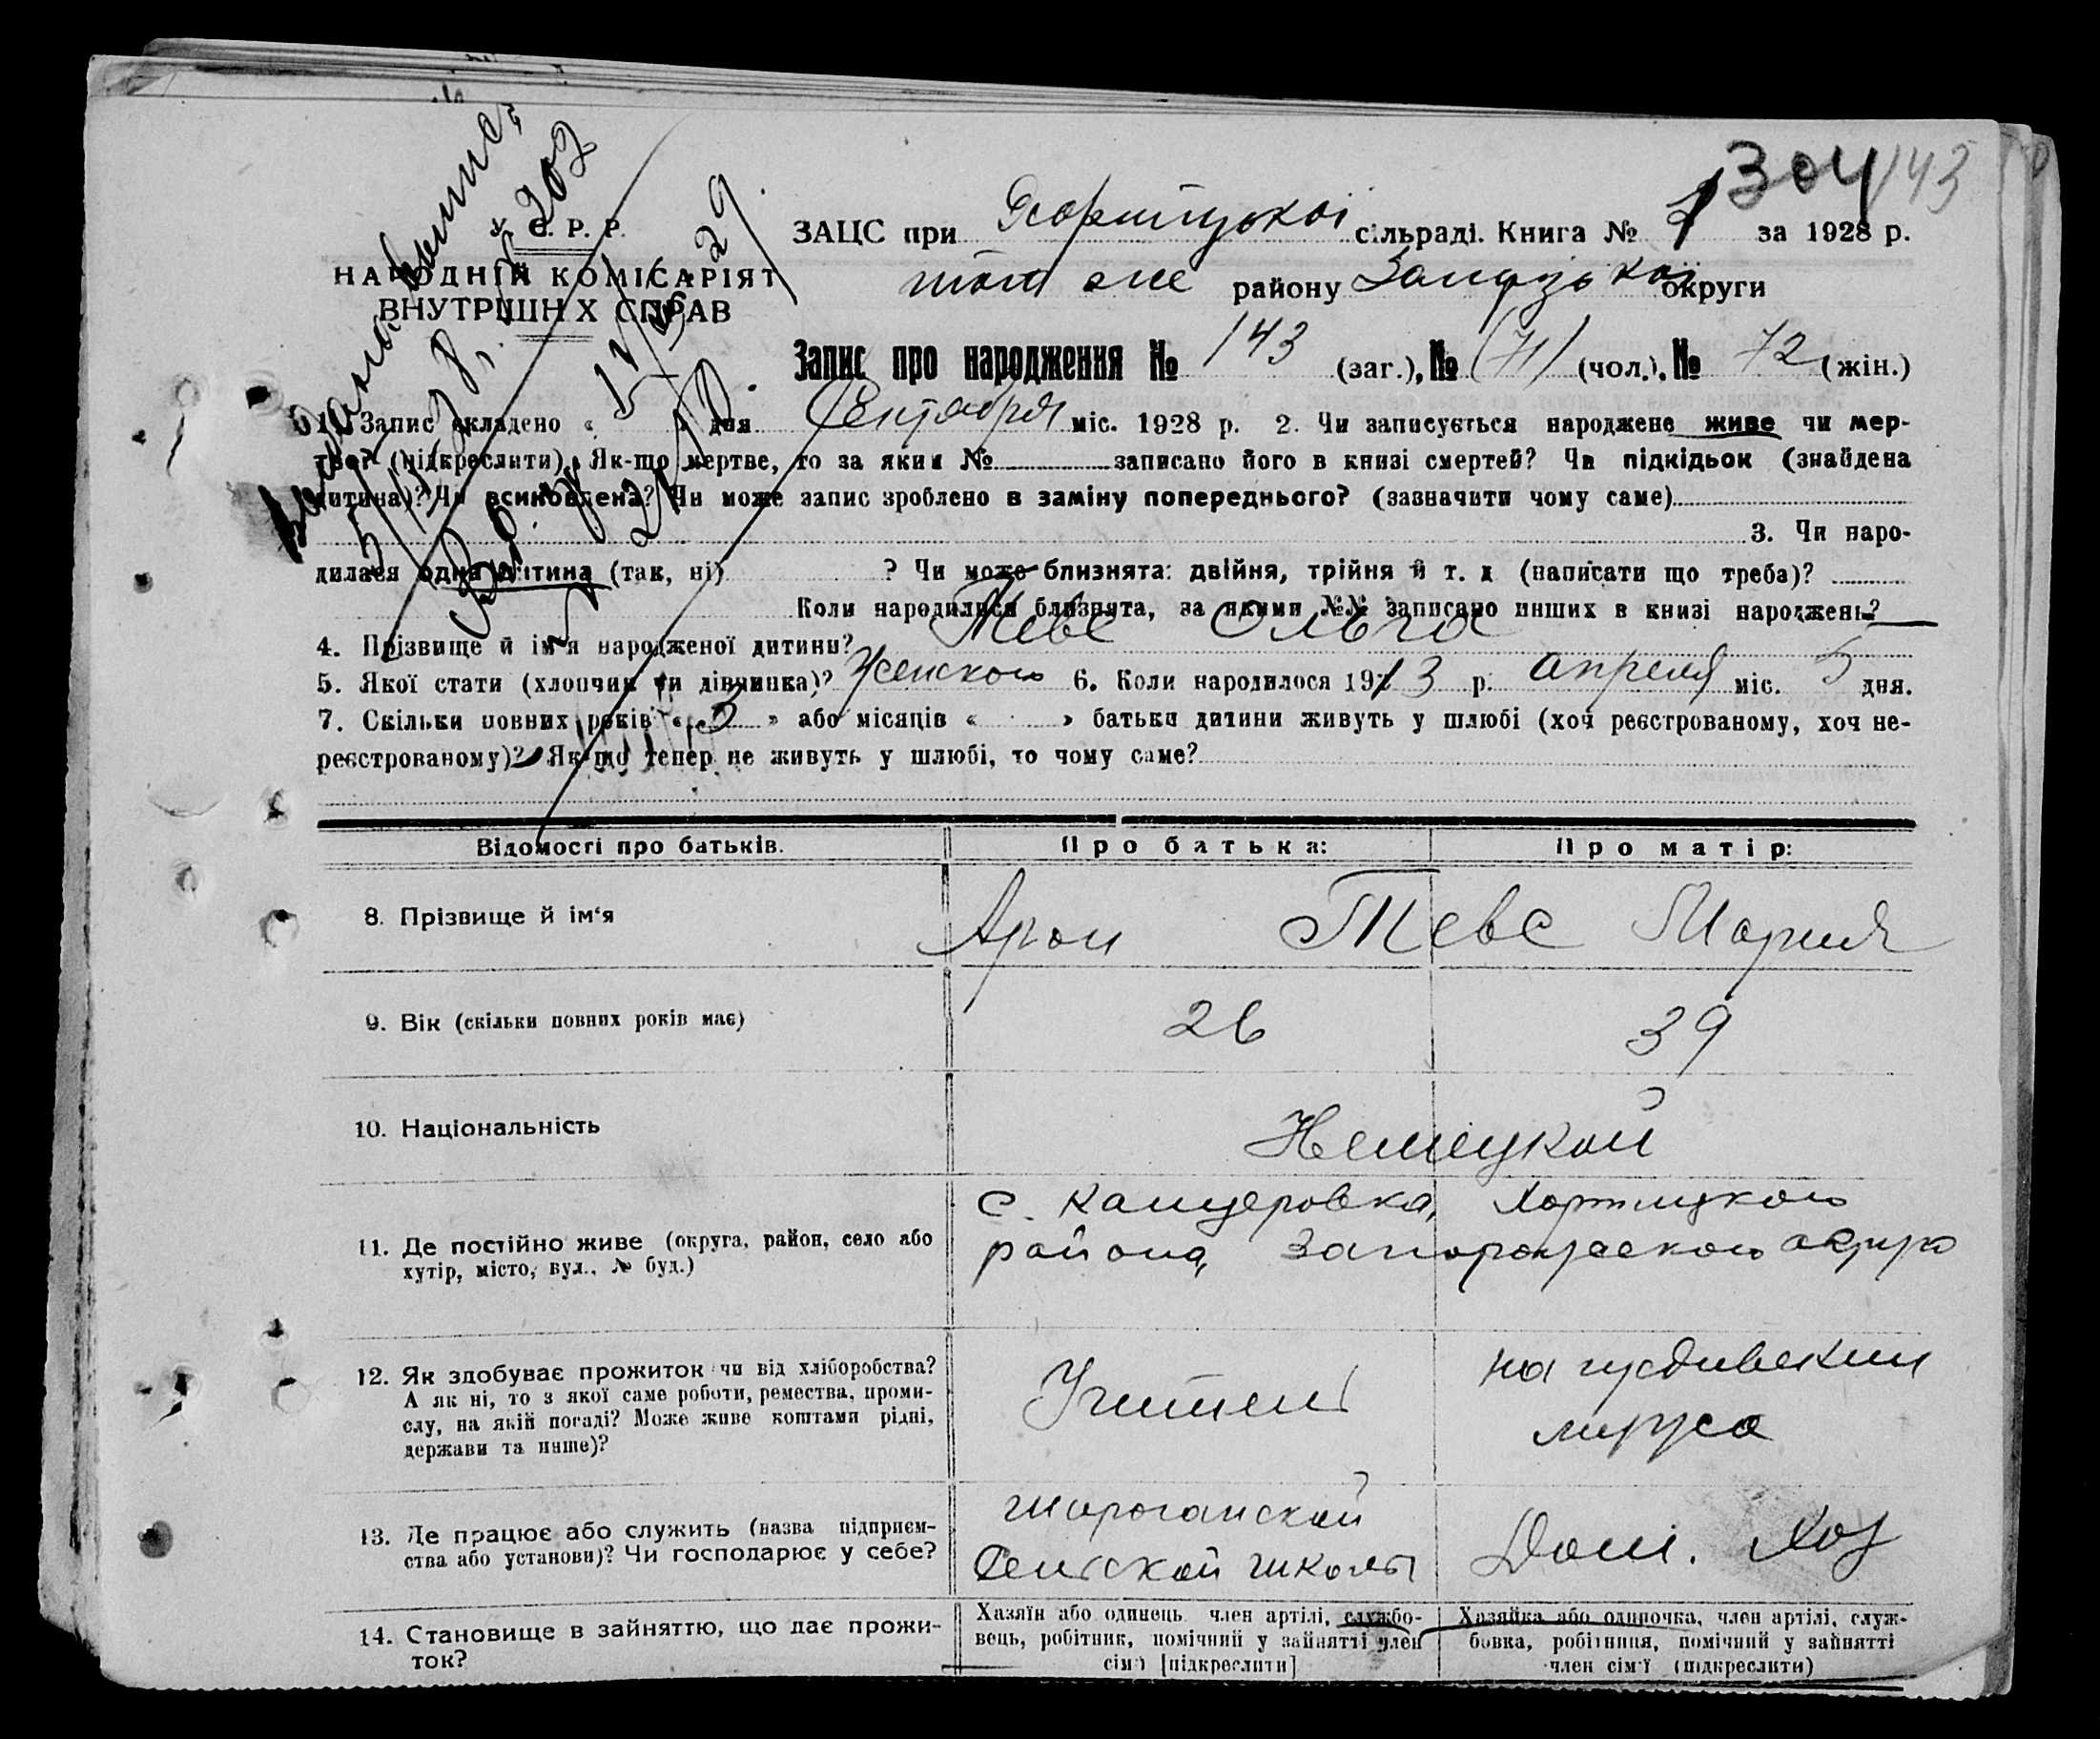 304 143
У. С. Р. Р.
НАРОДНІЙ КОМІСАРІЯТ
ВНУТРІШНІХ СПРАВ
ЗАЦС при Хортицькоі сільраді. Книга № 1 за 1928 р.
той же району Запорізькоі округи
Запис про народження № 143 (заг.), № (71) (чол.), № 72 (жін.)
1. Запис складено « 5 » дня Сентября міс. 1928 р. 2. Чи записується народжене живе чи мер-
тве? (підкреслити). Як-що мертве, то за яким № записано його в книзі смертей? Чи підкідьок (знайдена
дитина)? Чи всиновлена? Чи може запис зроблено в заміну попереднього? (зазначити чому саме)
3. Чи наро-
дилася одна дитина (так, ні) ? Чи може близнята: двійня, трійня й т. д. (написати що треба)?
Коли народилися близнята, за якими №№ записано инших в книзі народжень?
4. Прізвище й ім'я народженої дитини? Тевс Ольга
5. Якої стати (хлопчик чи дівчинка)? Женского 6. Коли народилося 1913 р. апреля міс. 5 дня.
7. Скільки повних років « 3 » або місяців « » батьки дитини живуть у шлюбі (хоч реєстрованому, хоч не-
реєстрованому)? Як-що тепер не живуть у шлюбі, то чому саме?
Відомості про батьків. Про батька: Про матір:
8. Прізвище й ім'я Арон Тевс Мария
9. Вік (скільки повних років має) 26 39
10. Національність Немецкой
11. Де постійно живе (округа, район, село або хутір, місто, вул., № буд.) с. Канцеровка, Хортицкого
района, Запорожского округа
12. Як здобуває прожиток чи від хліборобства?
А як ні, то з якої саме роботи, ремества, проми-
слу, на якій посаді? Може живе коштами рідні,
держави та инше)?
Учитель
на иждивении
мужа
13. Де працює або служить (назва підприєм-
ства або установи)? Чи господарює у себе?
сельской школы
Дом. Хоз
14. Становище в зайняттю, що дає прожи-
ток?
Хазяїн або одинець член артілі, службо-
вець, робітник, помічний у зайнятті член
сім'ї [підкреслити]
Хазяйка або одиночка, член артілі, служ-
бовка, робітниця, помічний у зайнятті
член сім'ї (підкреслити)